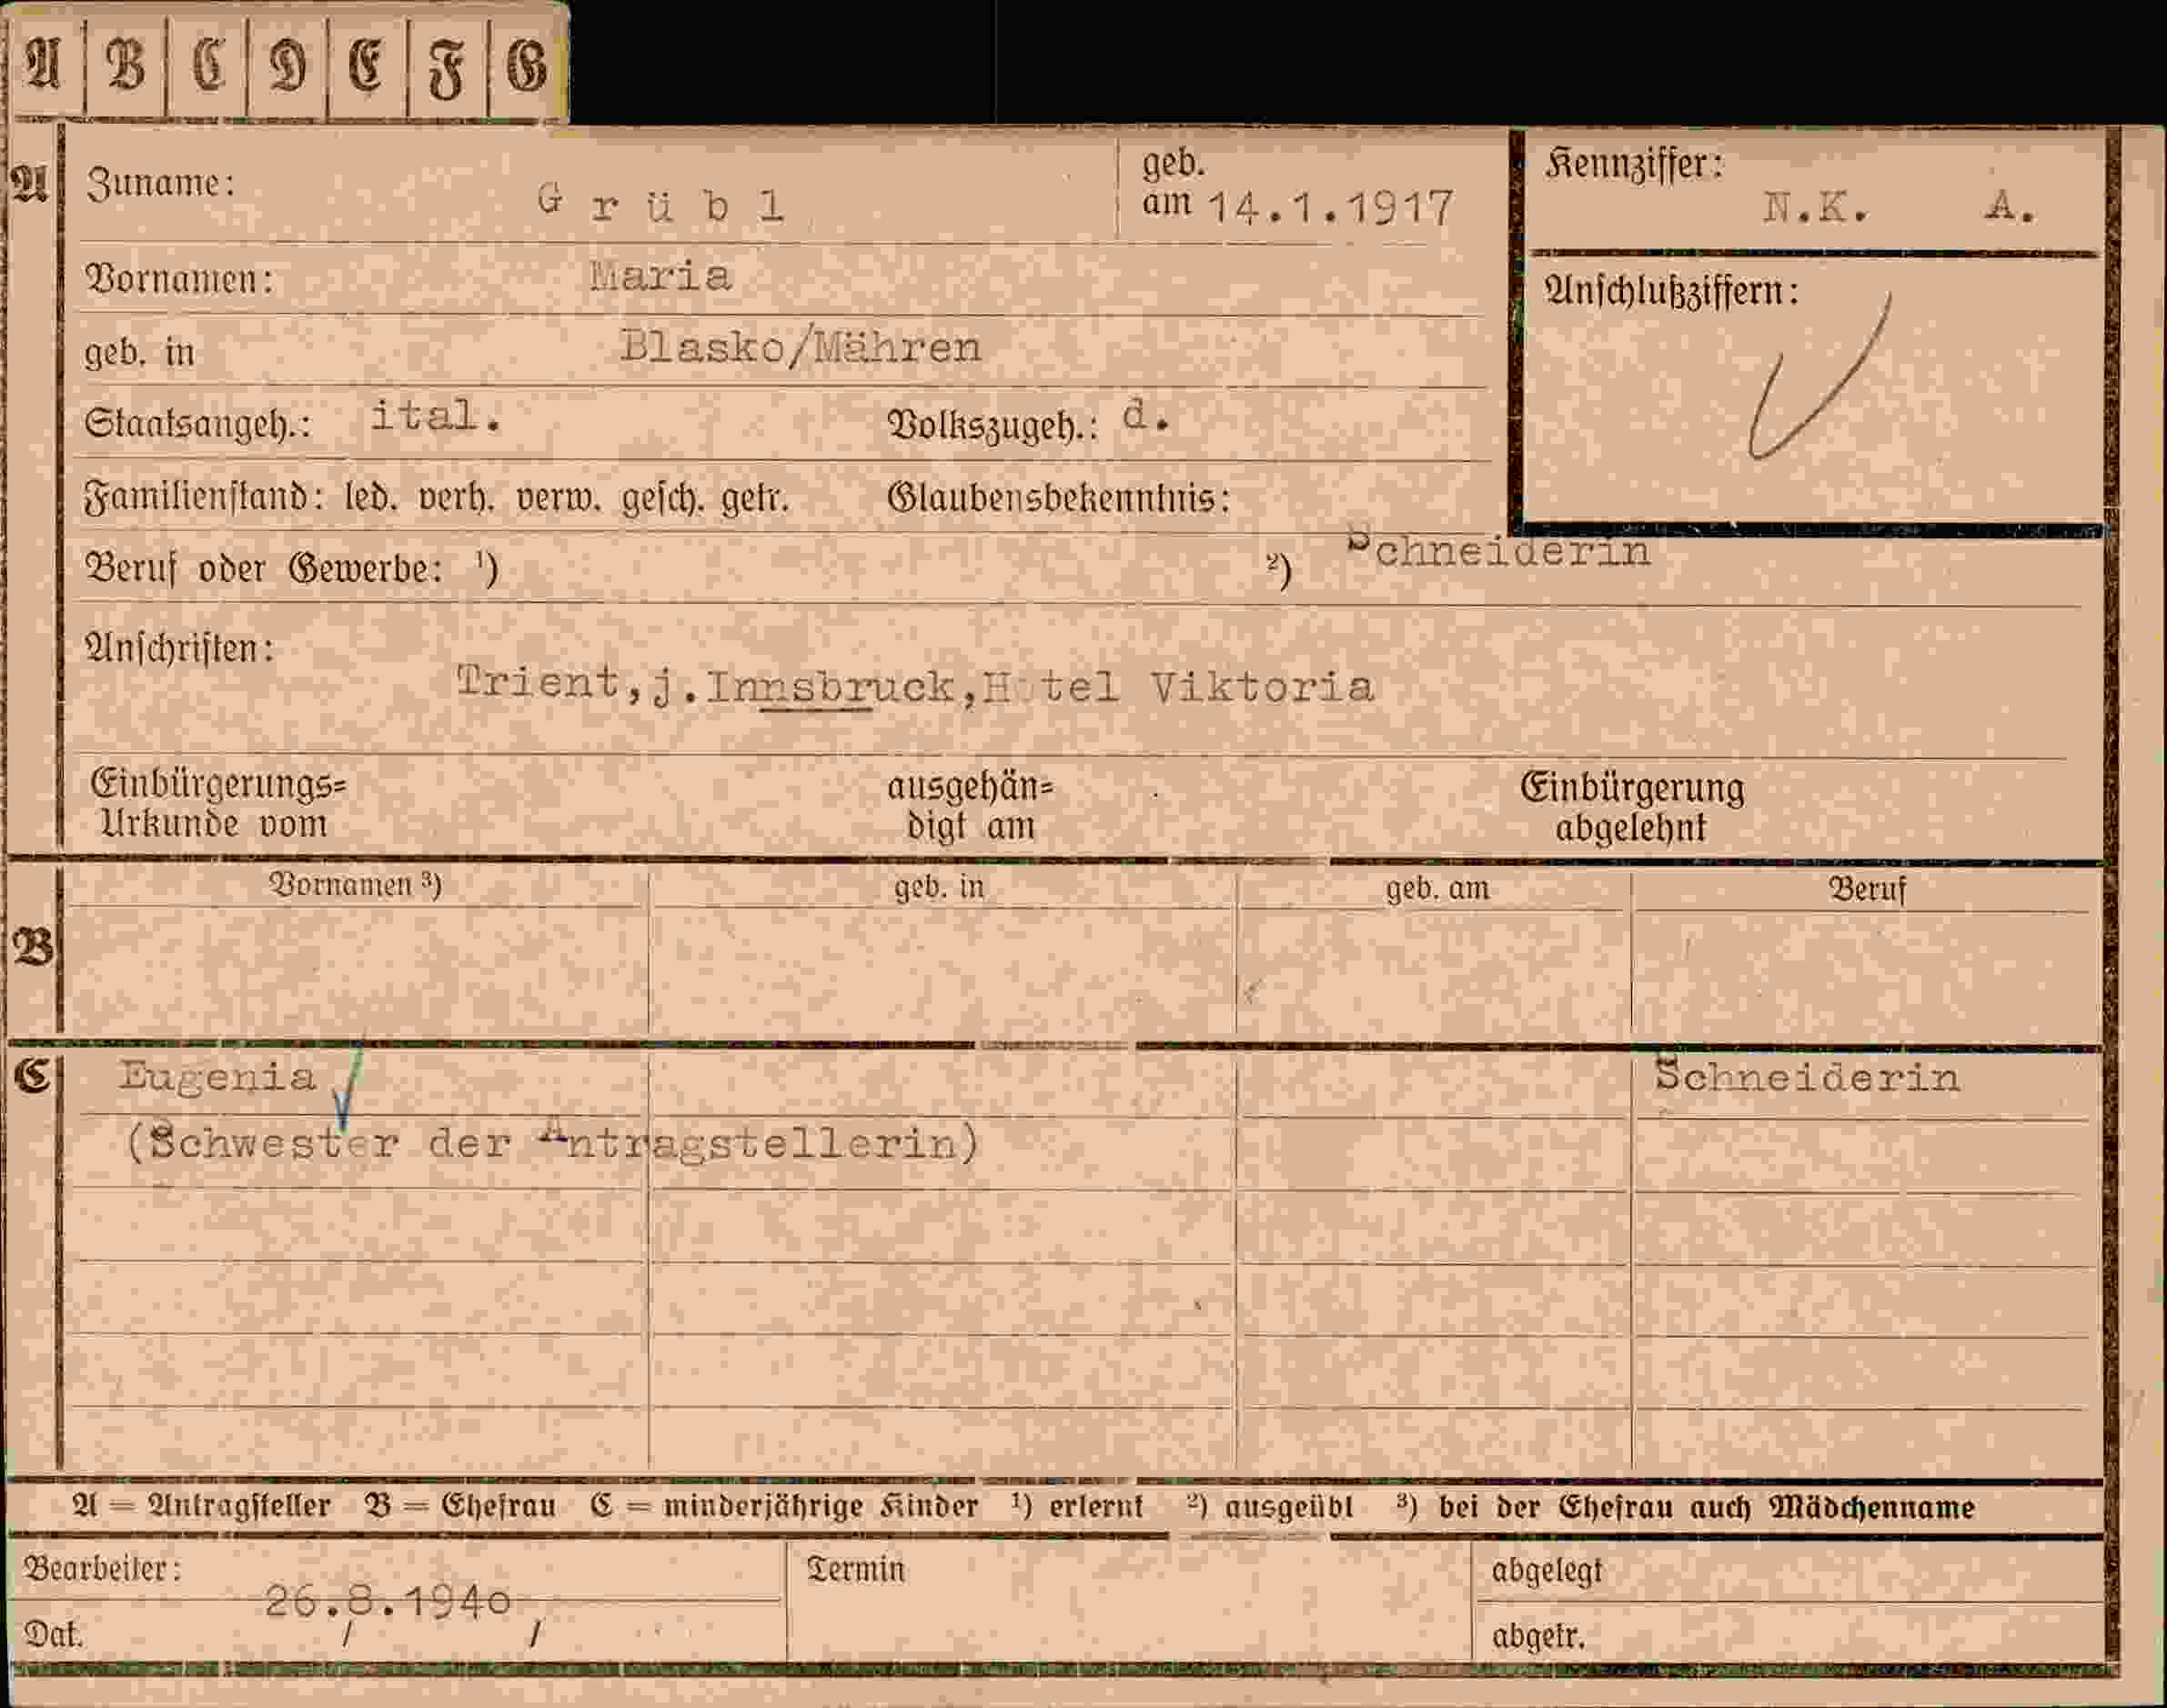 A B C D E F G
A Zuname: Grübl geb. am 14.1.1917 Kennziffer: N.K. A.
Vornamen: Maria Anschlußziffern:
geb. in Blasko/Mähren
Staatsangeh.: ital. Volkszugeh.: d.
Familienstand: led. verh. verw. gesch. getr. Glaubensbekenntnis:
Beruf oder Gewerbe: ¹) ²) Schneiderin
Anschriften:
Trient,j.Innsbruck,Hotel Viktoria
Einbürgerungs= ausgehän= Einbürgerung
Urkunde vom digt am abgelehnt
Vornamen ³) geb. in geb. am Beruf
B
C Eugenia Schneiderin
(Schwester der Antragstellerin)
A = Antragsteller B = Ehefrau C = minderjährige Kinder ¹) erlernt ²) ausgeübt ³) bei der Ehefrau auch Mädchenname
Bearbeiter: Termin abgelegt
26.8.1940
Dat. / / abgetr.